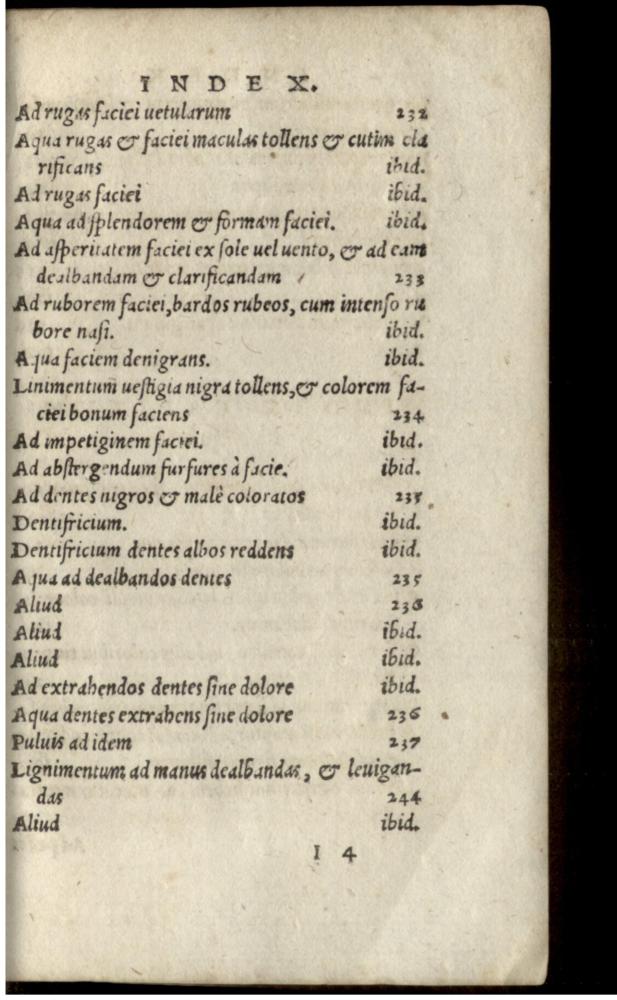 INDEX.
Ad rugas faciei uetularum 232
Aqua rugas & faciei maculas tollens & cutim cla
rificans ibid.
Ad rugas faciei ibid.
Aqua ad splendorem & formam faciei. ibid.
Ad asperitatem faciei ex sole uel uento, & ad eam
dealbandam & clarificandam 233
Ad ruborem faciei, bardos rubeos, cum intenso ru
bore nasi. ibid.
Aqua faciem denigrans. ibid.
Linimentum uestigia nigra tollens, & colorem fa-
ciei bonum faciens 234
Ad impetiginem faciei. ibid.
Ad abstergendum furfures à facie. ibid.
Ad dentes nigros & malè coloratos 235
Dentifricium. ibid.
Dentifricium dentes albos reddens ibid.
Aqua ad dealbandos dentes 235
Aliud 236
Aliud ibid.
Aliud ibid.
Ad extrahendos dentes sine dolore ibid.
Aqua dentes extrahens sine dolore 236
Puluis ad idem 237
Lignimentum ad manus dealbandas, & leuigan-
das 244
Aliud ibid.
I 4